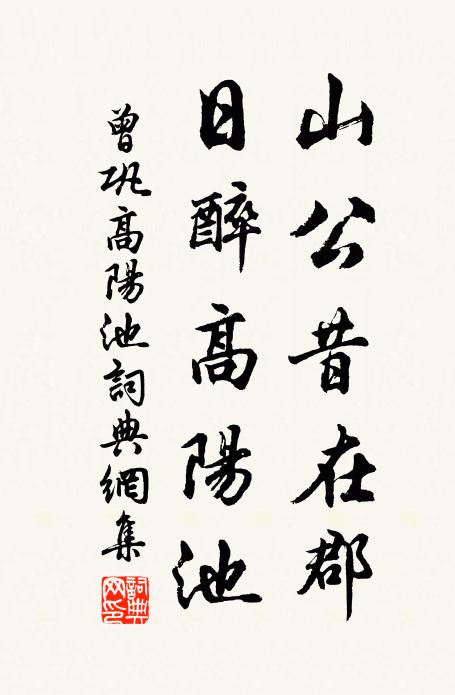 山公昔在郡
日醉高陽池
曾鞏高陽池詞典網集
詞典網印